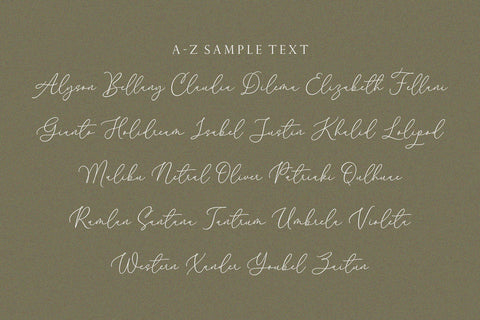 A-Z SAMPLE TEXT
Alyson Bellany Claudia Dilema Elizabeth Fellani
Gianto Holidream Isabel Justin Khalid Lolipod
Malibu Netral Oliver Patriaki Qulhuae
Ramlan Santana Tantrum Umbrela Violeta
Western Xander Youbel Zaitun